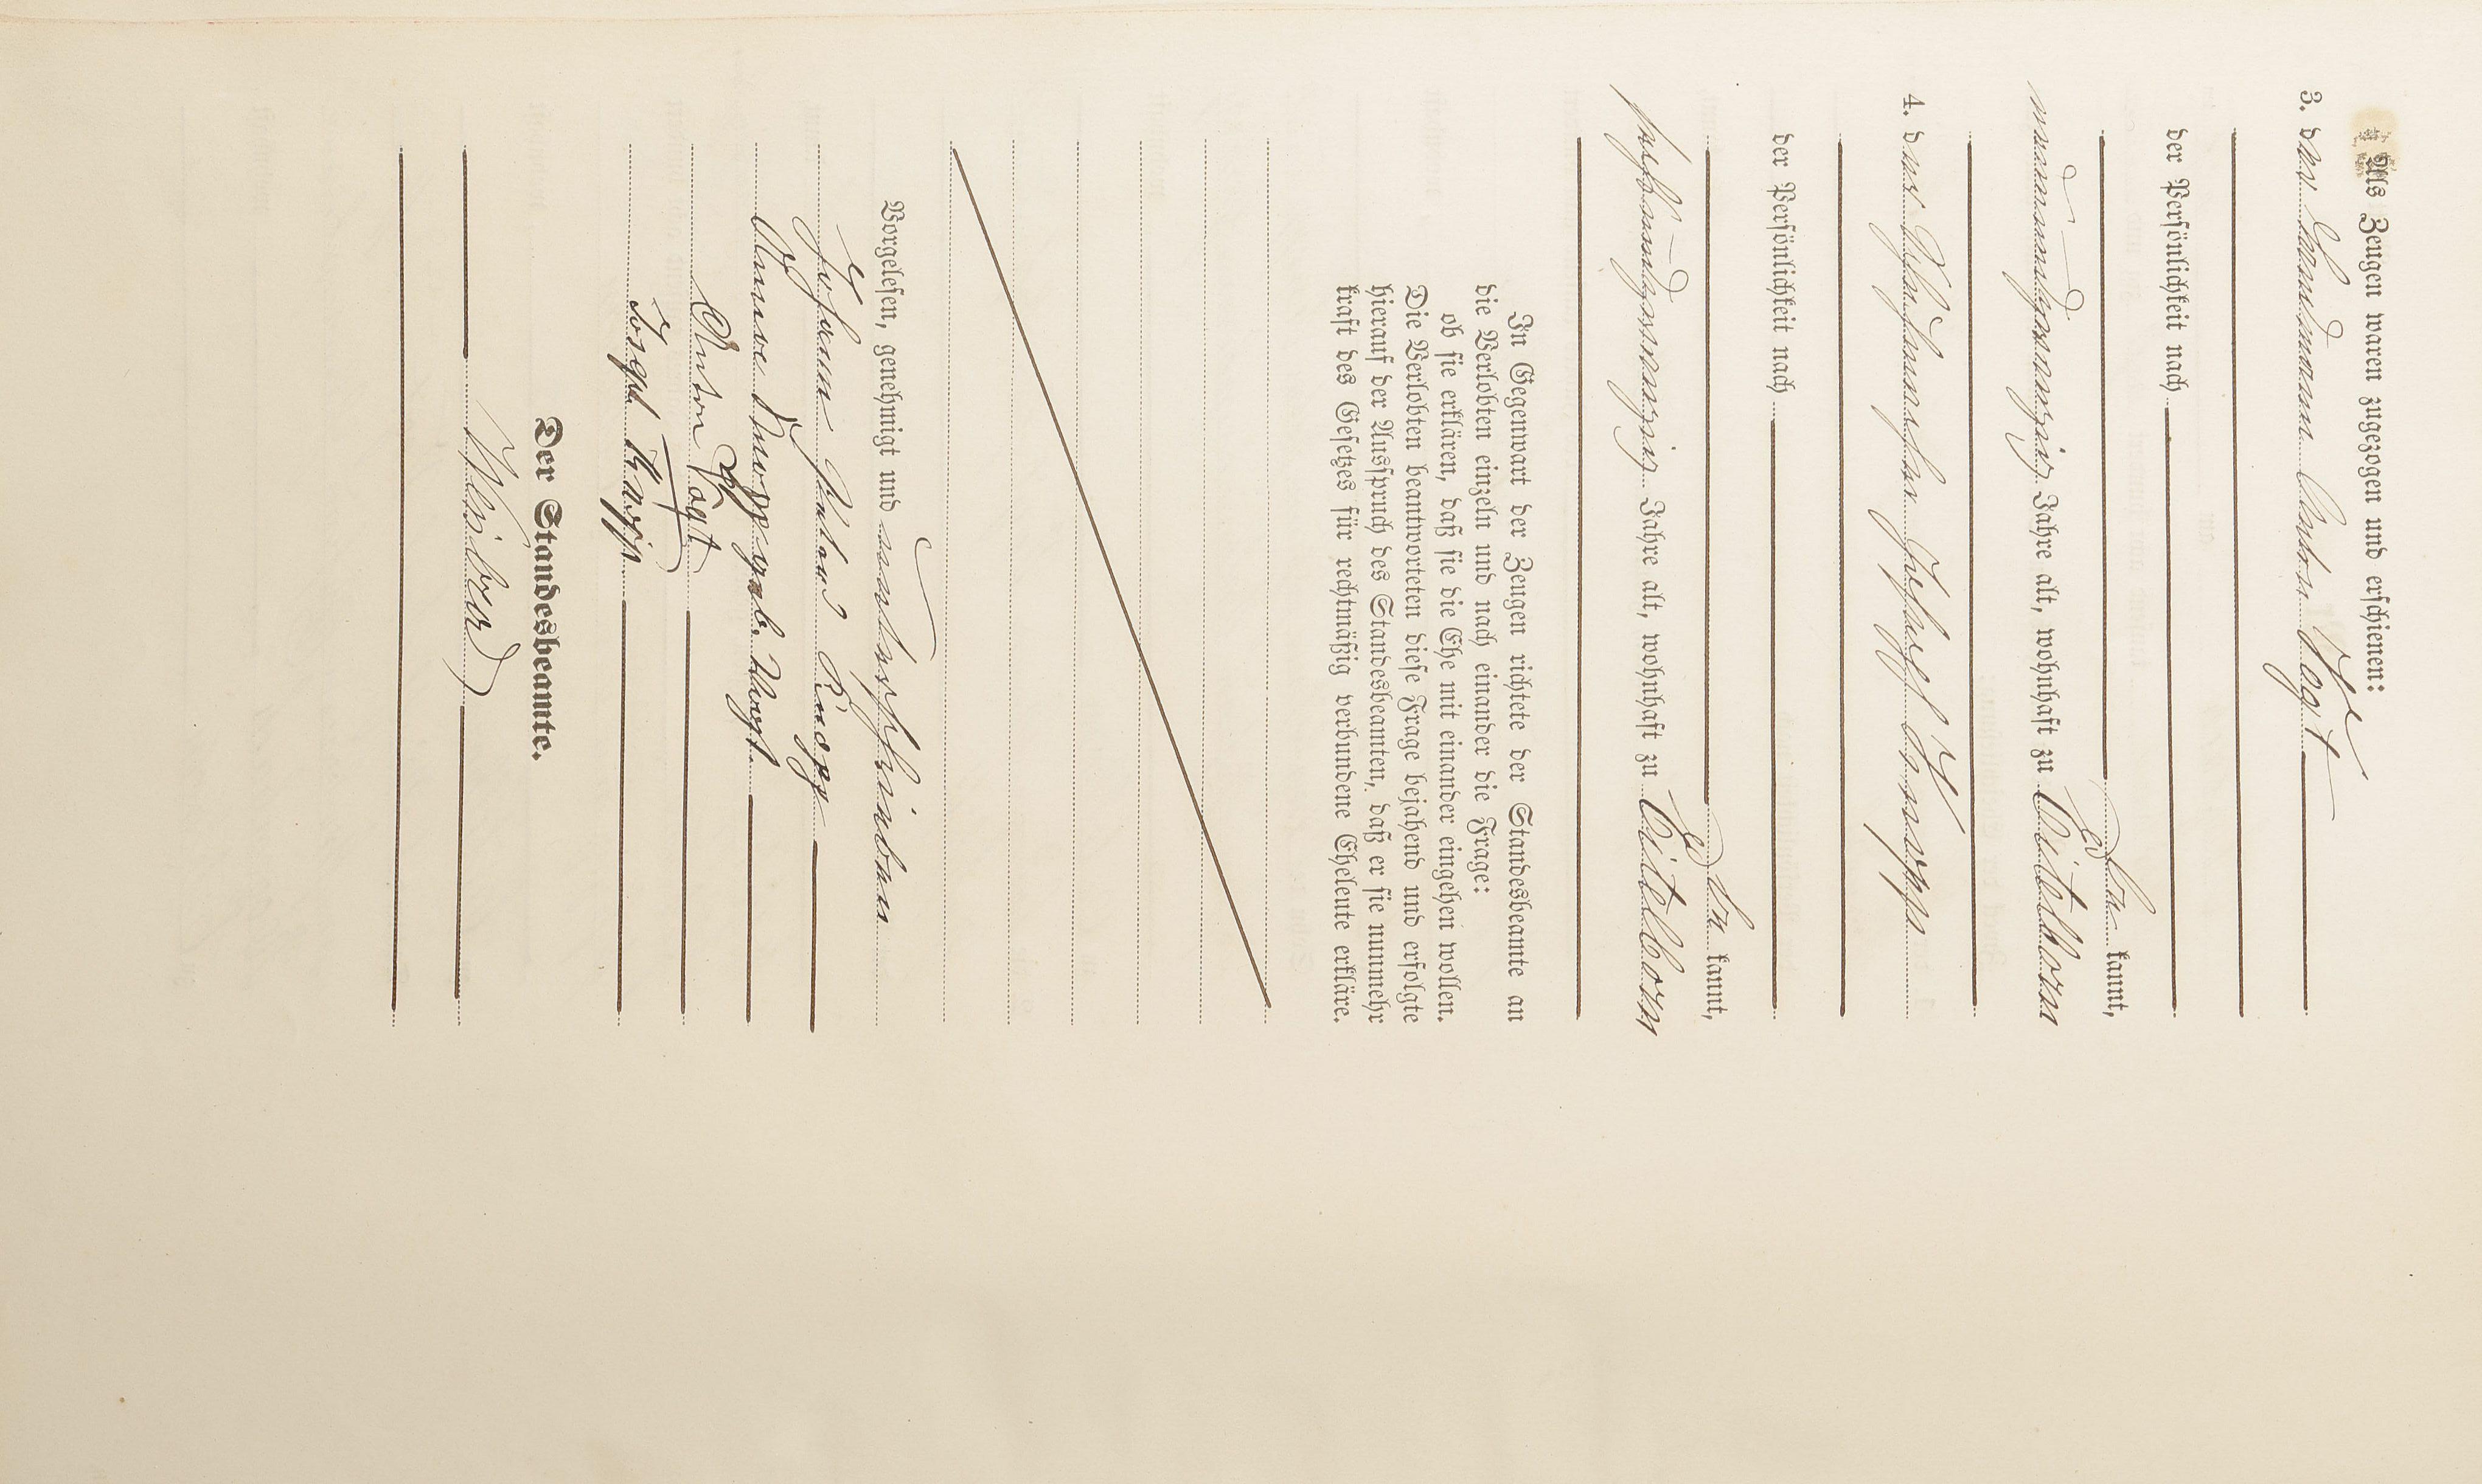 Als Zeugen waren zugezogen und erschienen:
3. der Landmann Anton Vogt
der Persönlichkeit nach
be kannt,
neunundzwanzig Jahre alt, wohnhaft zu Oitelborn
4. der Schuhmacher Joseph Knapp
der Persönlichkeit nach
be kannt,
sechsundzwanzig Jahre alt, wohnhaft zu Oitelborn
In Gegenwart der Zeugen richtete der Standesbeamte an
die Verlobten einzeln und nach einander die Frage:
ob sie erklären, daß sie die Ehe mit einander eingehen wollen.
Die Verlobten beantworteten diese Frage bejahend und erfolgte
hierauf der Ausspruch des Standesbeamten, daß er sie nunmehr
kraft des Gesetzes für rechtmäßig verbundene Eheleute erkläre.
Vorgelesen, genehmigt und unterschrieben
Johann Knapp
Knapp geb. Vogt.
Anton Vogt
Joseph Knapp
Der Standesbeamte.